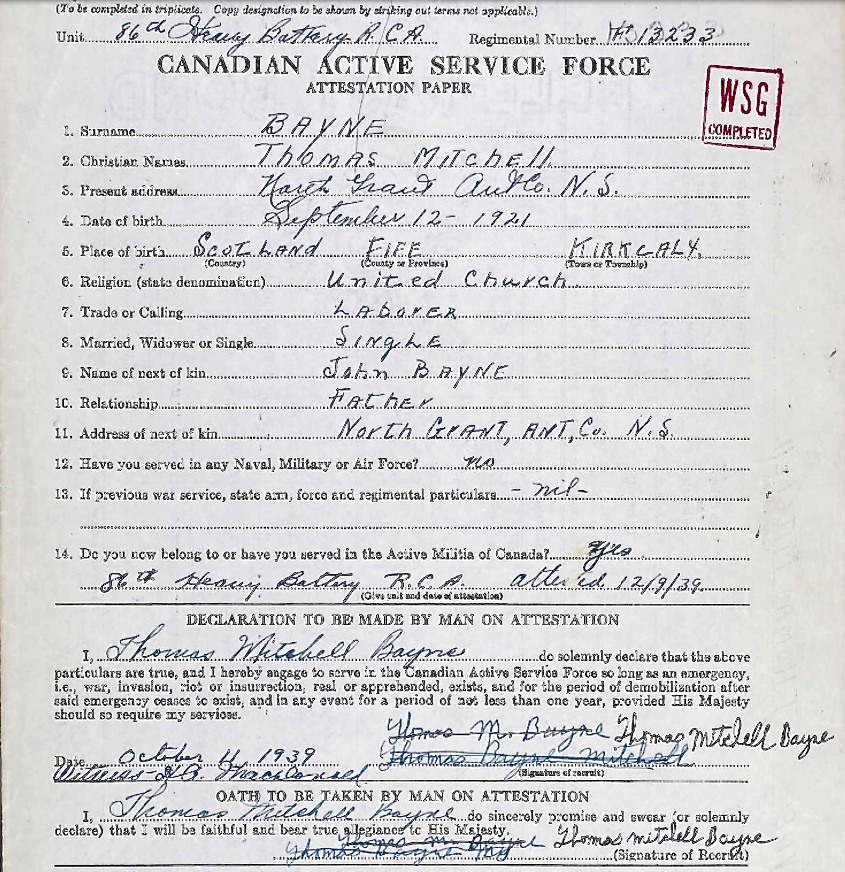 (To be completed in triplicate. Copy designation to be shown by striking out terms not applicable.)
Unit 86th Heavy Battery R.C.A. Regimental Number 13233
CANADIAN ACTIVE SERVICE FORCE
ATTESTATION PAPER
WSG
COMPLETED
1. Surname BAYNE
2. Christian Names THOMAS MITCHELL
3. Present address North Grant Ant Co. N.S.
4. Date of birth September 12- 1921
5. Place of birth SCOTLAND FIFE KIRKCALY
(Country) (County or Province) (Town or Township)
6. Religion (state denomination) United Church
7. Trade or Calling LABORER
8. Married, Widower or Single SINGLE
9. Name of next of kin John BAYNE
10. Relationship Father
11. Address of next of kin NORTH GRANT, ANT, Co. N.S.
12. Have you served in any Naval, Military or Air Force? no
13. If previous war service, state arm, force and regimental particulars - nil -
14. Do you now belong to or have you served in the Active Militia of Canada? Yes
86th Heavy Battery R.C.A. 12/9/39
(Give unit and date of attestation)
DECLARATION TO BE MADE BY MAN ON ATTESTATION
I, Thomas Mitchell Bayne do solemnly declare that the above
particulars are true, and I hereby engage to serve in the Canadian Active Service Force so long as an emergency,
i.e., war, invasion, riot or insurrection, real or apprehended, exists, and for the period of demobilization after
said emergency ceases to exist, and in any event for a period of not less than one year, provided His Majesty
should so require my services.
Thomas M. Bayne Thomas Mitchell Bayne
Date October 1939 Thomas Bayne Mitchell
Witness- MacDonald (Signature of recruit)
OATH TO BE TAKEN BY MAN ON ATTESTATION
I, Thomas Mitchell Bayne do sincerely promise and swear (or solemnly
declare) that I will be faithful and bear true allegiance to His Majesty.
Thomas M. Bayne Thomas mitchell Bayne
Thomas Bayne (Signature of Recruit)